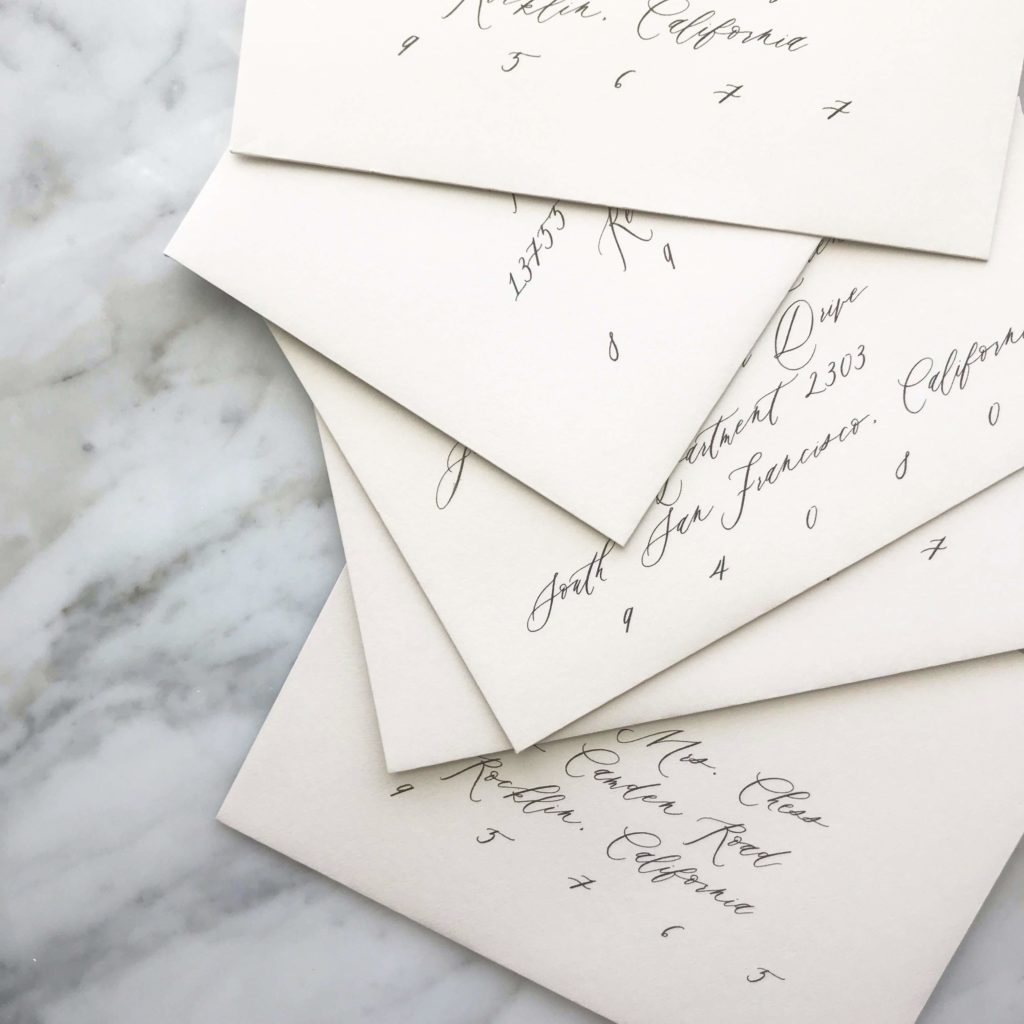 Rocklin, California
9 5 6 7 7
13755
9
8
Drive
2303
South San Francisco, California
9 4 0 8 0
7
Mrs. Chess
Camden Road
Rocklin, California
9 5 7 6 5